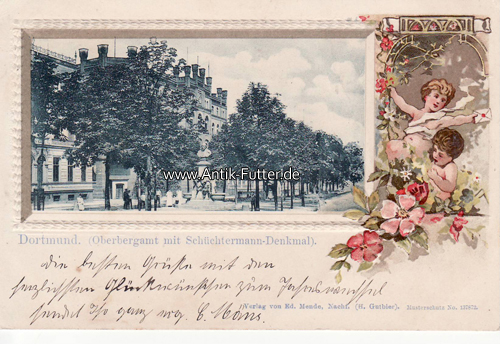 www.Antik-Futter.de
Dortmund. (Oberbergamt mit Schüchtermann-Denkmal).
Die besten Grüße mit den
herzlichsten Glückwünschen zum Jahreswechsel
sendet Ihr ganz erg. C. Mans.
Verlag von Ed. Mende, Nachf. (H. Guthier). Musterschutz No.